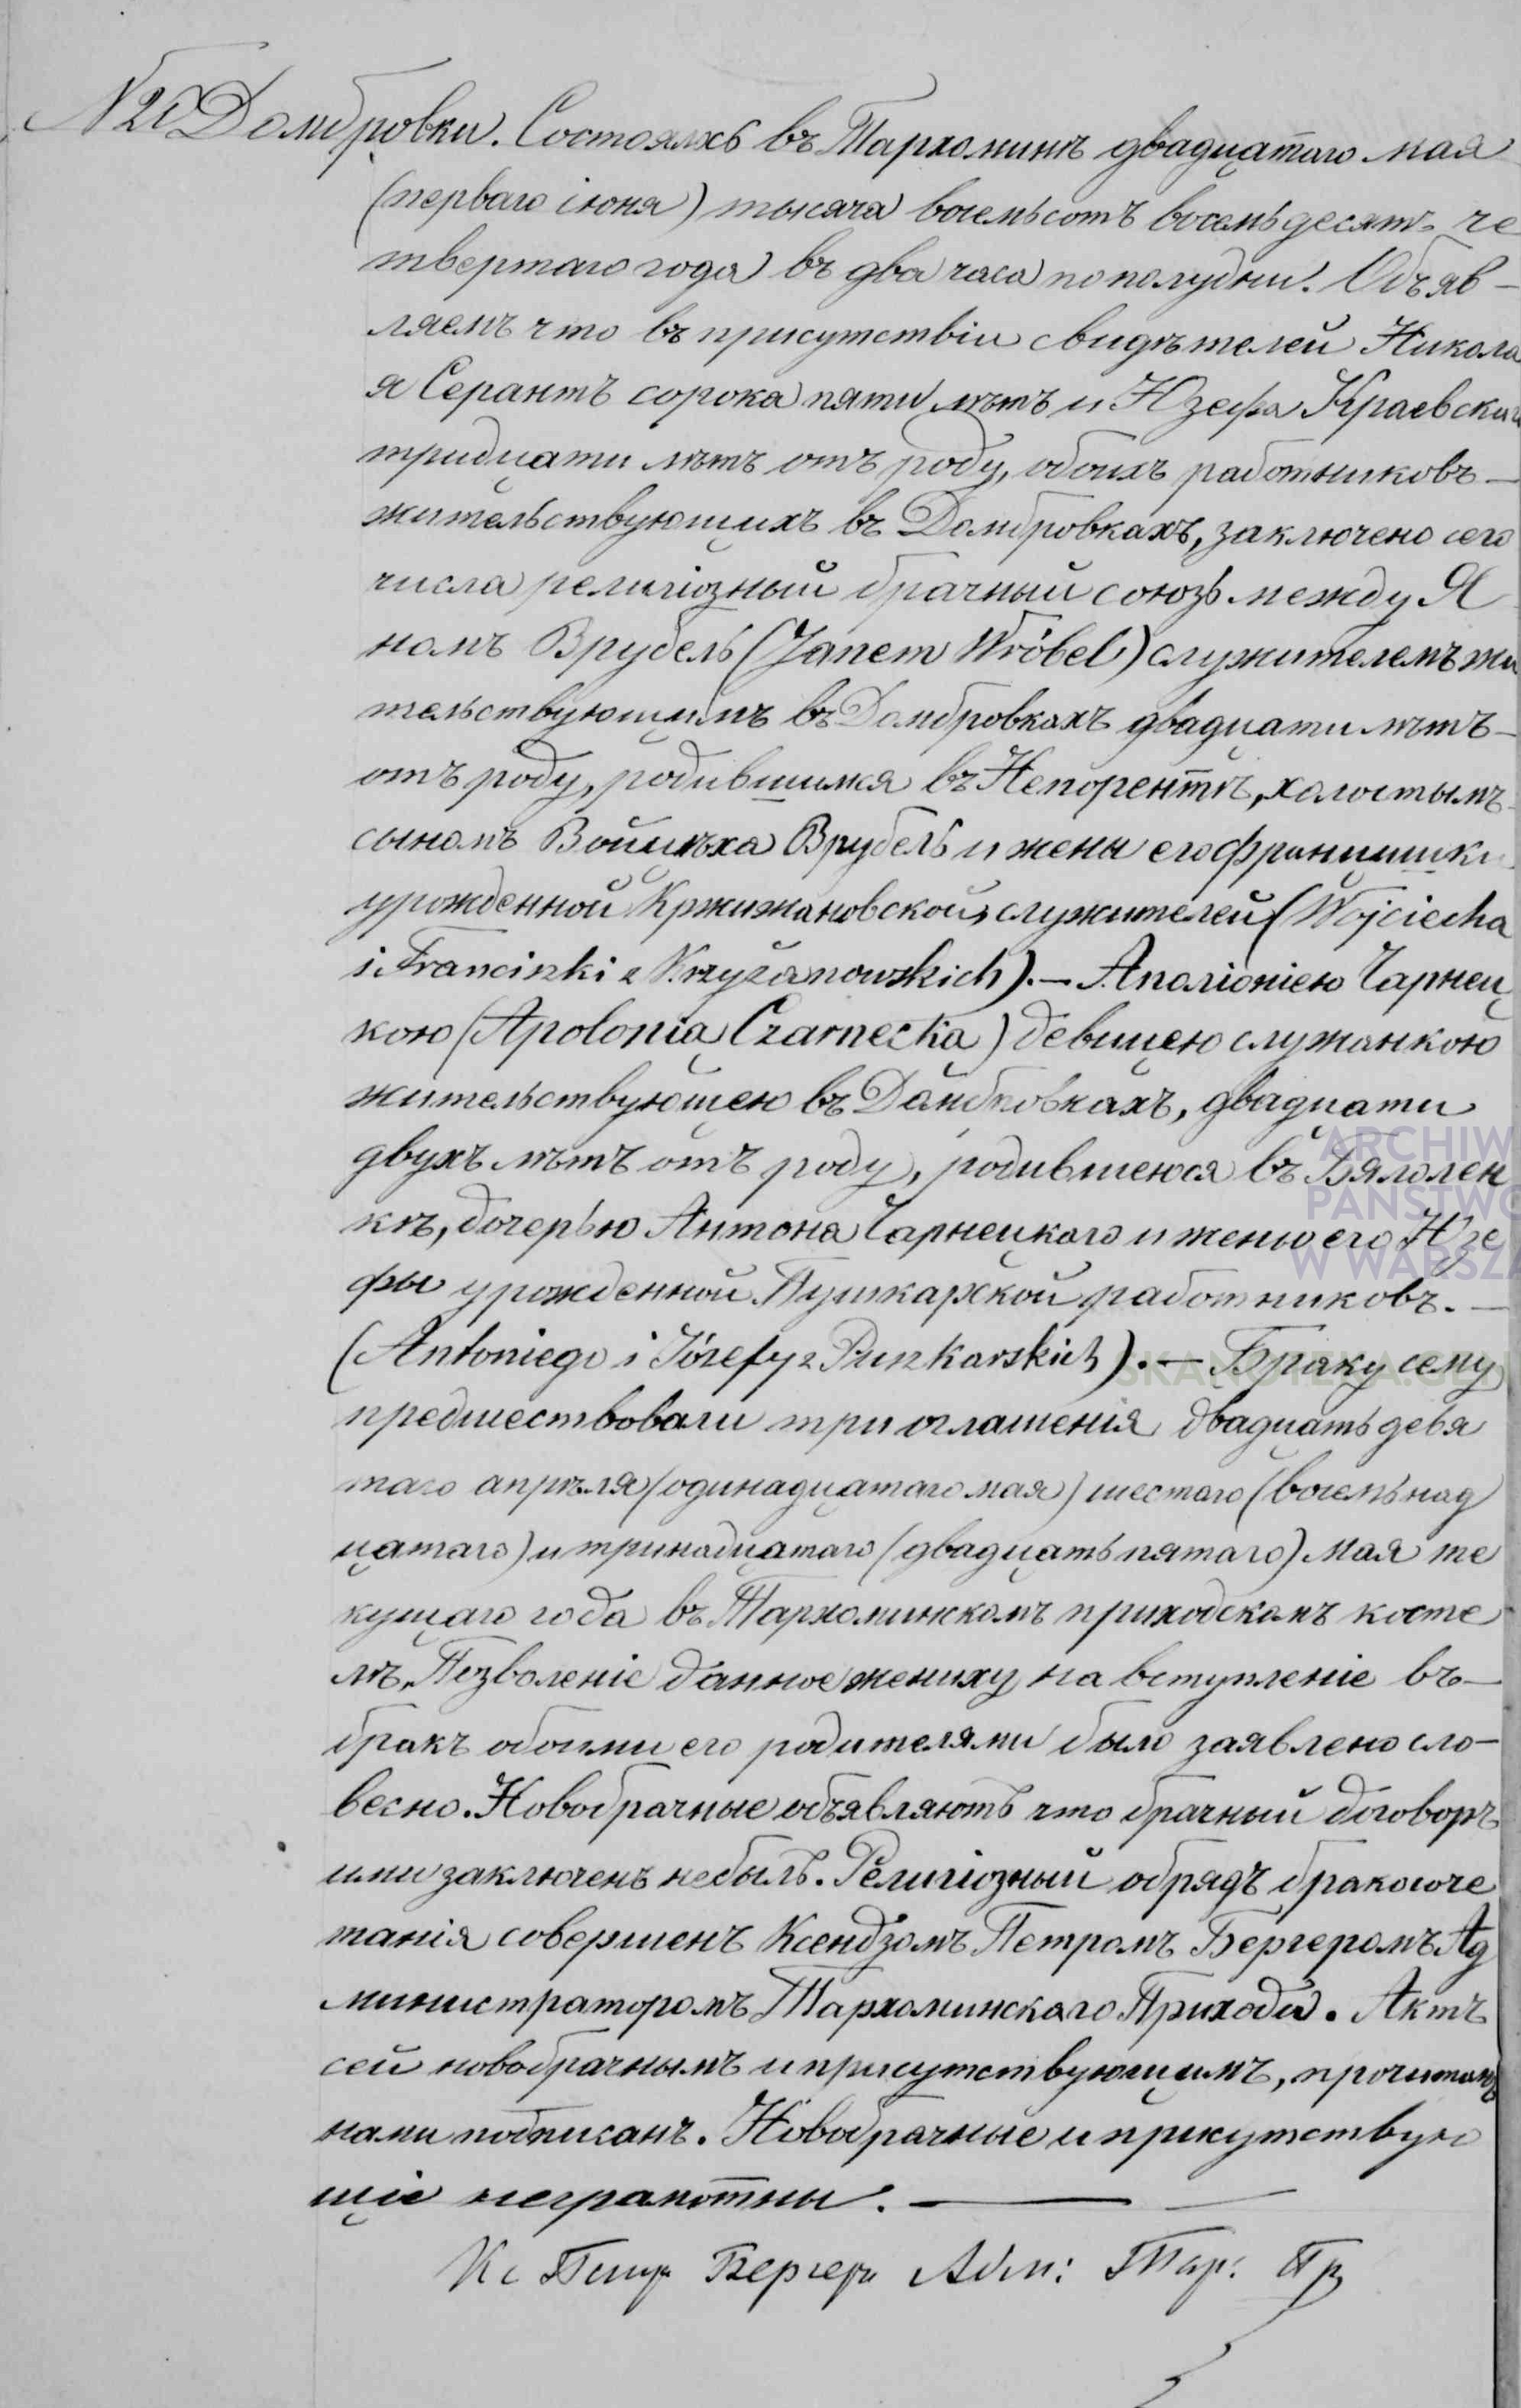 Домбровки. Состоялось въ Тархоминѣ двадцатаго мая
(перваго іюня) тысяча восемьсотъ восемьдесятъ че
твертаго года въ два часа по полудни. Объяв-
ляемъ что въ присутствіи свидѣтелей Никола
я Серантъ сорока пяти лѣтъ и Юзефа Краевскаго
тридцати лѣтъ отъ роду, обоихъ работниковъ —
жительствующихъ въ Домбровкахъ, заключено сего
числа религіозный брачный союзъ между Я
номъ Врубель (Janem Wróbel) служителемъ жи
тельствующимъ въ Домбровкахъ двадцати лѣтъ —
отъ роду, родившимся въ Непорентѣ, холостымъ
сыномъ Войцѣха Врубель и жены его Францишки
урожденной Кржижановской, служителей (Wojciecha
i Franciszki z Krzyżanowskich). — Аполіоніею Чарнец
кою (Apolonią Czarnecką) девицею служанкою
жительствующею въ Домбровкахъ, двадцати
двухъ лѣтъ отъ роду, родившеюся въ Бялолен
кѣ, дочерью Антона Чарнецкаго и жены его Юзе
фы урожденной Пушкарской работниковъ. —
(Antoniego i Józefy z Puszkarskich). — Браку сему
предшествовали три оглашенія двадцать девя
таго апрѣля (одинадцатаго мая) шестаго (восемьнад
цатаго) и тринадцатаго (двадцать пятаго) мая те
кущаго года въ Тархоминскомъ приходскомъ косте
лѣ. Позволеніе данное жениху на вступленіе въ —
бракъ обоими его родителями было заявлено сло-
весно. Новобрачные объявляютъ что брачный договоръ
ими заключенъ небылъ. Религіозный обрядъ бракосоче
танія совершенъ Ксендзомъ Петромъ Бергеромъ Ад
министраторомъ Тархоминскаго Прихода. Актъ
сей новобрачнымъ и присутствующимъ, прочитанъ
нами подписанъ. Новобрачные и присутствую
щіе неграмотны. —
Кс Петръ Бергеръ Адм: Тар: Пр
ARCHIW
PAŃSTWO
W WARSZA
SKANOTEKA.GEN